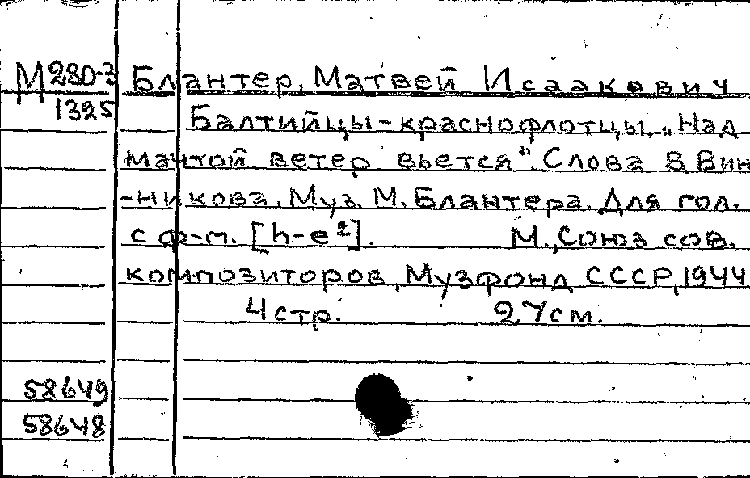 М280-3 Блантер, Матвей Исаакович
1325
Балтийцы-краснофлотцы. „Над
мачтой ветер вьется". Слова В. Вин
-никова. Муз. М. Блантера. Для гол.
с ф-п. [h-e²]. М., Союз сов.
композиторов, Музфонд СССР, 1944
4 стр. 27 см.
58649
58648